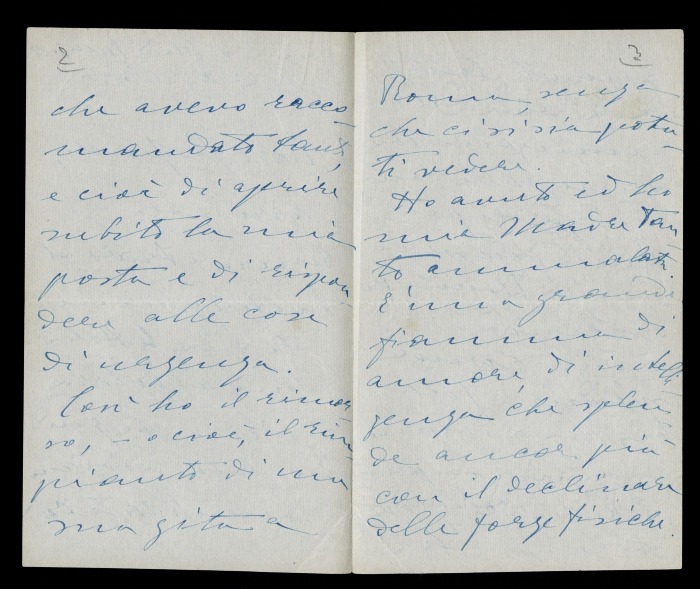 2
che avevo racco-
mandato tanto,
e cioè di aprire
subito la mia
posta e di rispon-
dere alle cose
di urgenza.
Così ho il rimor-
so, – o cioè, il rim-
pianto di una
sua gita a
3
Roma, senza
che ci si sia potu-
ti vedere.
Ho avuto ed ho
mia Madre tan-
to ammalata.
È una grande
fiamma di
amore, di intelli-
genza che splen-
de ancor più
con il declinare
delle forze fisiche.